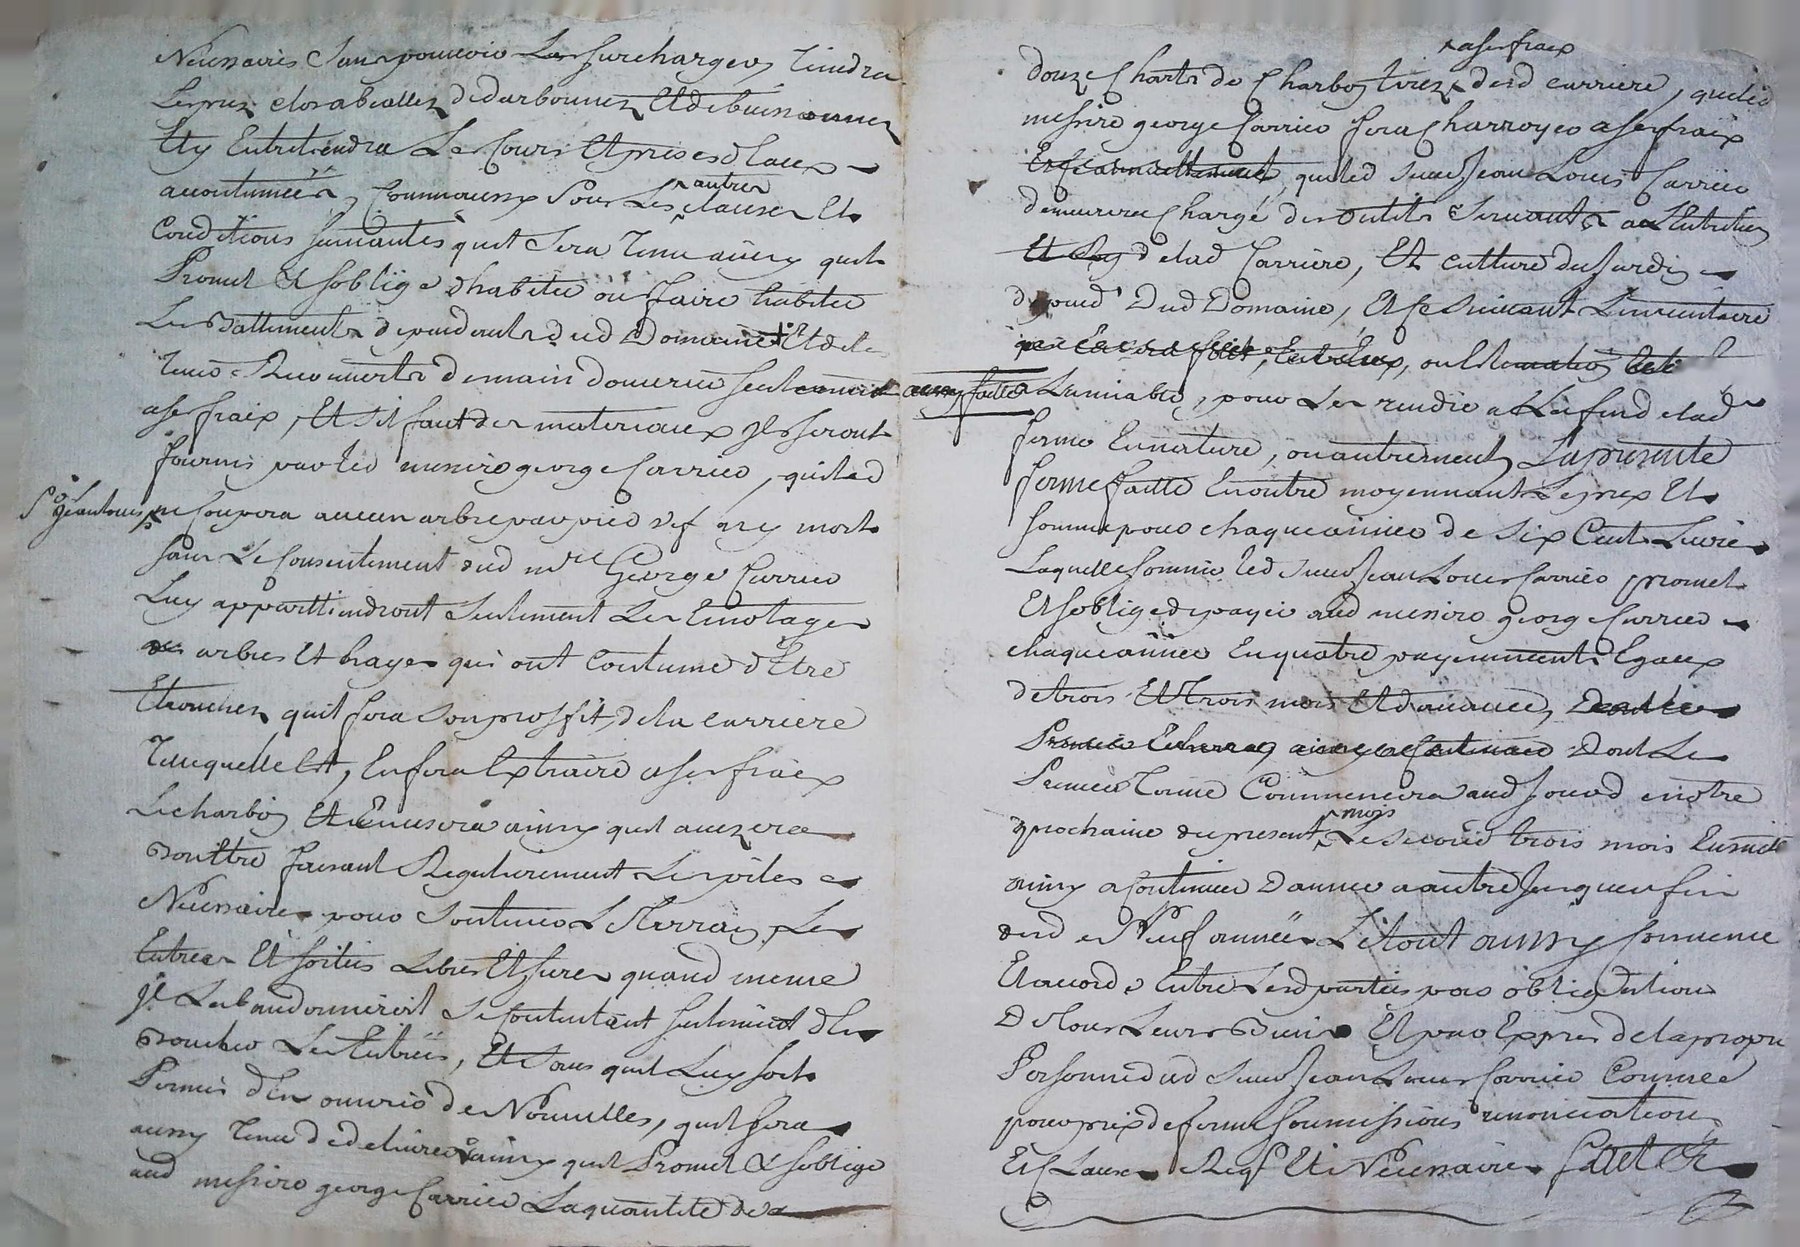 Necessaires sans pouvoir Les surcharger, Tiendra
Les prez clos abeallez dedarbonnez Et debuissonnez
Et y Entretiendra Les Cours Et prises deaux
accoutumées, Comm aussy Sous Les autres clauses Et
Conditions suivantes quil sera Tenu ainsy quil
Promet & soblige dhabiter ou faire habiter
Les Battiments dependants dud Domaine Et de les
Tenir Recouverts demain douvrier seulement
a ses fraix, Et sil faut des materiaux Ils seront
fournis par led messire george Carrier, quiled
Sr Jean Louis ne Coupera aucun arbre par pied vif ny mort
sans Le Consentement dud mre George Carrier
Luy appartiendront seulement Les Emotages
des arbres Et hayes qui ont Coutume dEtre
Etrouchez quil fera son proffit de la carriere
Telle quelle Est, En fera Extraire a ses fraix
Le charbon Et En usera ainsy quil avizera
bon Etre faisant Regulierement Les piles
Necessaires pour soutenir Le Terrain, Les
Entrees Et sorties Libres Et sures quand meme
Il Labandonneroit se Contentant seulement dEn
boucher Les Entrées, Et sans quil Luy soit
Permis dEn ouvrir de Nouvelles, quil sera
aussy Tenu de delivrer ainsy quil Promet & soblige
aud messire george Carrier La quantité de
a ses fraix
douze Charts de Charbon tirez desd carriere, queled
messire george Carrier fera Charroyer a ses fraix
queled sieur Jean Louis Carrier
demeurera Chargé des outils servants a LEntretien
delad Carriere, Et culture du Jardin
dud Domaine, Et Ce suivant Linventaire
aussy faitte a Lamiable, pour Les rendre a La fin delad
ferme En nature, ou autrement, La presente
ferme faitte En outre moyennant Le prix Et
somme pour chaque année de six Cent Livres
Laquelle somme led sieur Jean Louis Carrier promet
Et soblige de payer aud messire george Carrier
chaque année En quatre payements Egaux
de trois Et trois mois Et davance, dont Le
Premier Terme Commencera aud Jour d notre
prochaine du present mois Le second trois mois Ensuite
ainsy a Continuer dannee a autre Jusques en fin
desd Neuf années Le tout ainsy Convenu
Et accordé Entre Lesd parties par obligations
De tous Leurs Biens Et par Exprès de la propre
Personne dud sieur Jean Louis Carrier Comme
pour prix de ferme soumissions renonciations
Et Clauses Reqs Et Necessaires fait Et